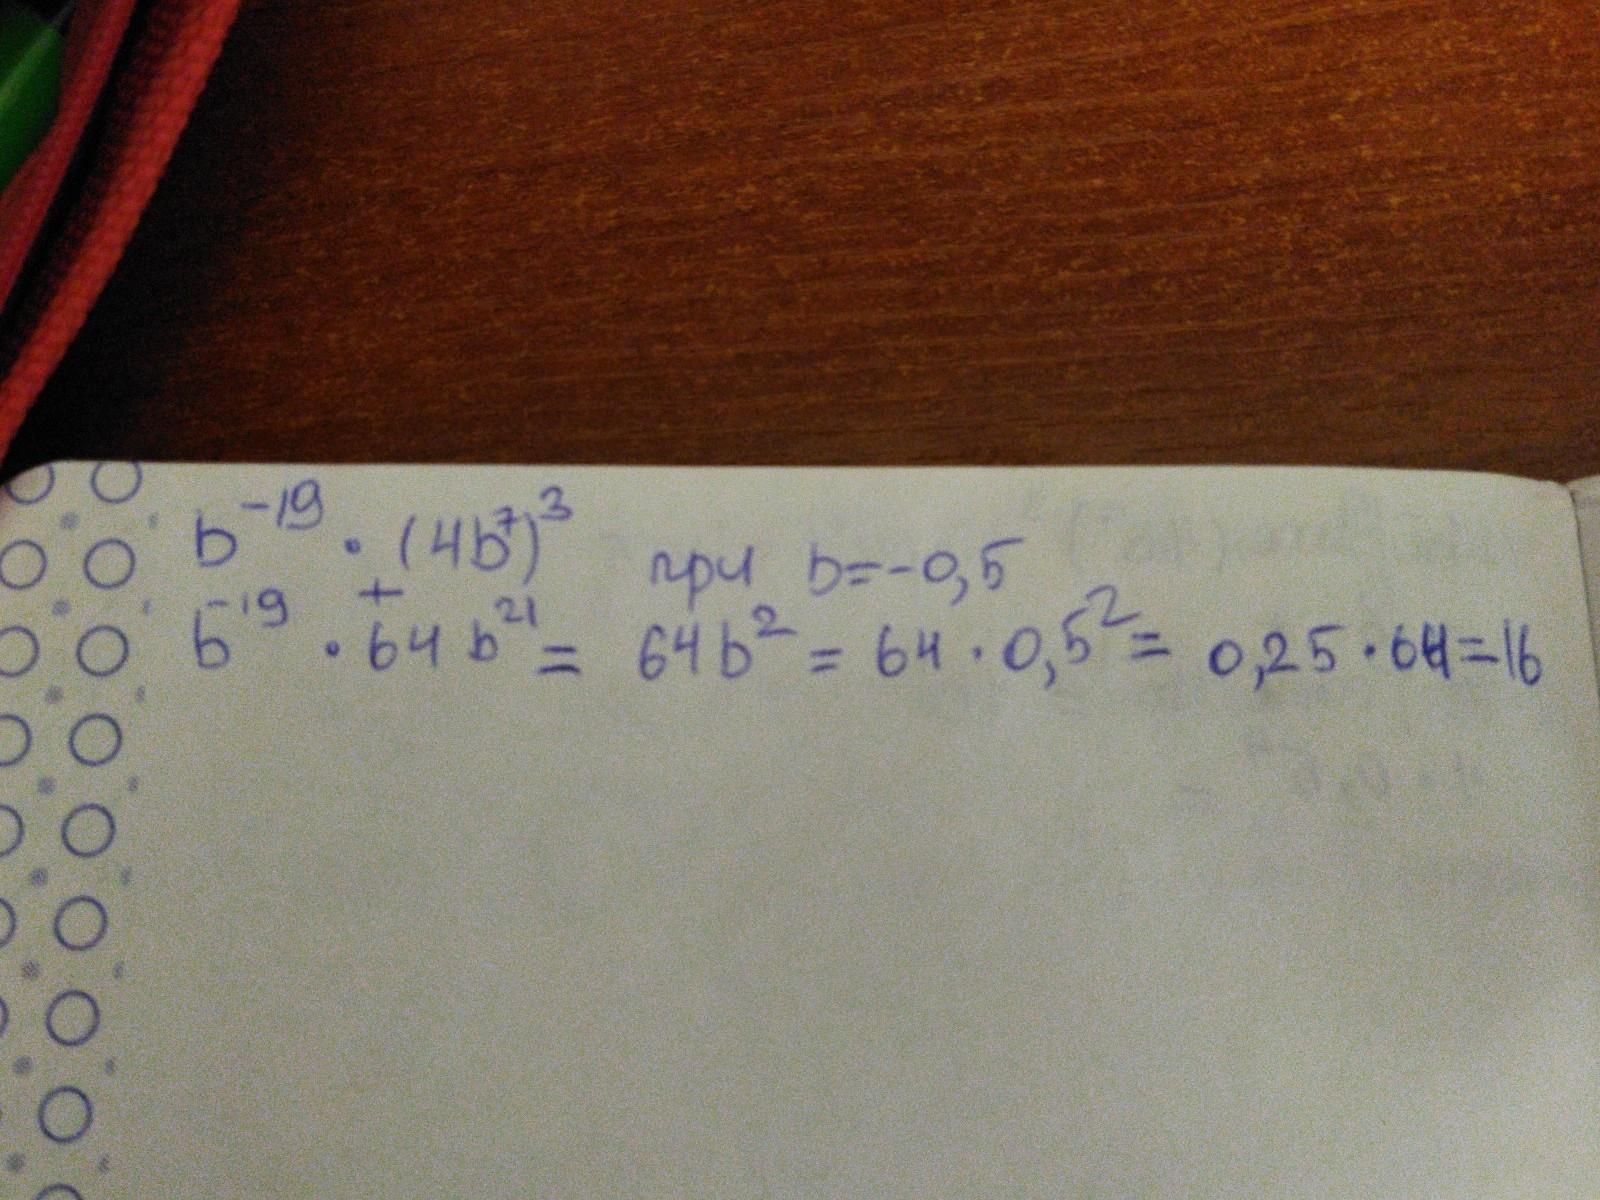 b⁻¹⁹ · (4b⁷)³ при b=-0,5
b⁻¹⁹ · 64 b²¹ = 64b² = 64 · 0,5² = 0,25 · 64=16
+